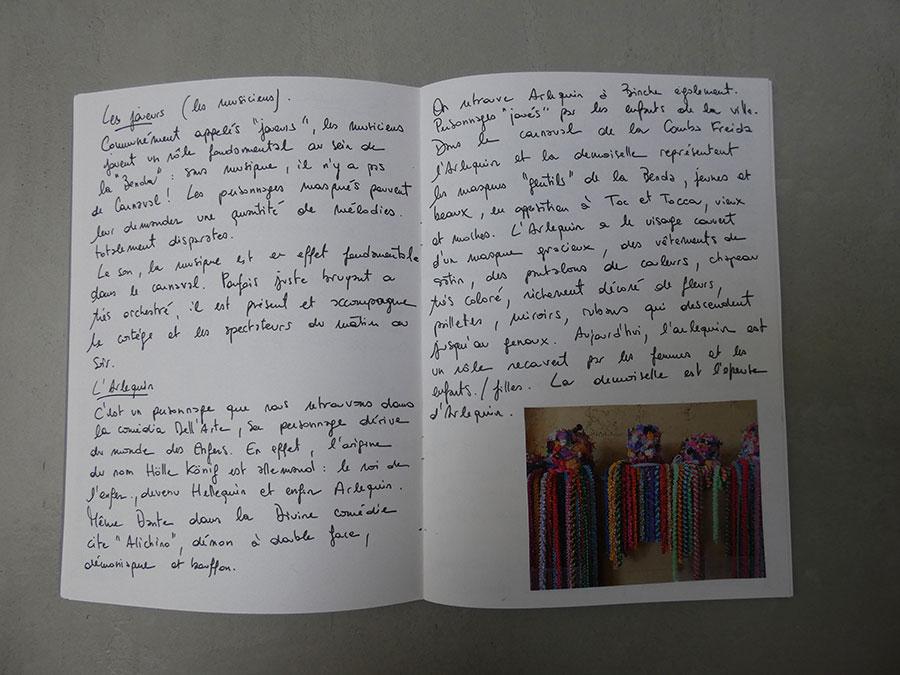 Les joueurs (les musiciens).
Communément appelés "joueurs", les musiciens
jouent un rôle fondamental au sein de
la "Benda" : sans musique, il n'y a pas
de Carnaval ! Les personnages masqués peuvent
leur demander une quantité de mélodies
totalement disparates.
Le son, la musique est en effet fondamentale
dans le carnaval. Parfois juste bruyant a
très orchestré, il est présent et accompagne
le cortège et les spectateurs du matin au
soir.
L'Arlequin
C'est un personnage que nous retrouvons dans
la comédia Dell'Arte, Sa personnage dérive
du monde des Enfers. En effet, l'origine
du nom Hölle König est allemand : le roi de
l'enfer, devenu Hellequin et enfin Arlequin.
Même Dante dans la Divine comédie
cite "Alichino", démon à double face,
démoniaque et bouffon.
On retrouve Arlequin à Binche également.
Personnages "joués" par les enfants de la ville.
Dans le carnaval de la Comba Freida
l'Arlequin et la demoiselle représentent
les masques "gentils" de la Benda, jeunes et
beaux, en opposition à Toc et Tocca, vieux
et moches. L'Arlequin a le visage couvert
d'un masque gracieux, des vêtements de
satin, des pantalons de couleurs, chapeau
très coloré, richement décoré de fleurs,
paillettes, miroirs, rubans qui descendent
jusqu'au genoux. Aujourd'hui, l'arlequin est
un rôle recouvert par les femmes et les
enfants/filles. La demoiselle est l'épouse
d'Arlequin.